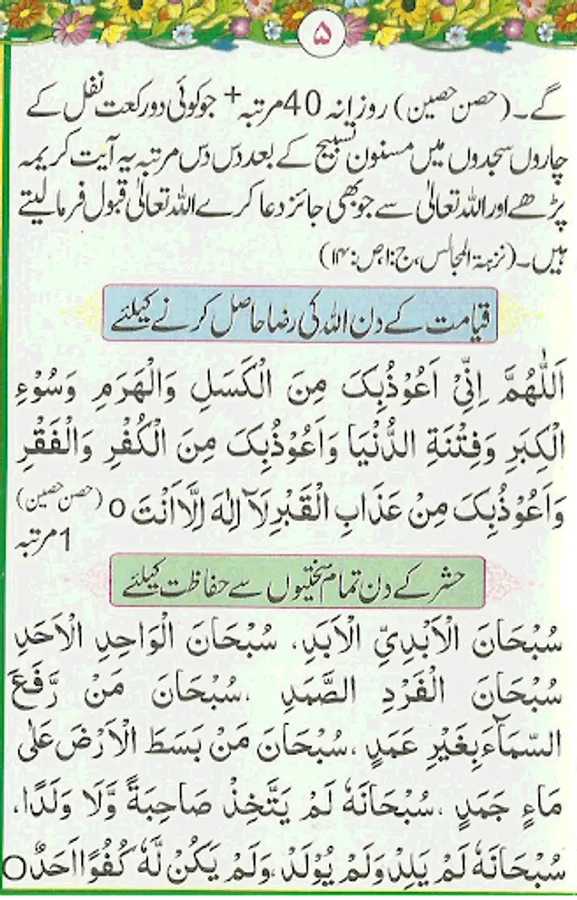 ۵
گے۔ (حصن حصین) روزانہ 40 مرتبہ + جو کوئی دو رکعت نفل کے
چاروں سجدوں میں مسنون تسبیح کے بعد دس دس مرتبہ یہ آیت کریمہ
پڑھے اور اللہ تعالیٰ سے جو بھی جائز دعا کرے اللہ تعالیٰ قبول فرما لیتے
ہیں۔ (نزہۃ المجالس، ج:۱، ص:۱۴)
قیامت کے دن اللہ کی رضا حاصل کرنے کیلئے
اَللّٰهُمَّ اِنِّیْ اَعُوْذُبِکَ مِنَ الْکَسَلِ وَالْهَرَمِ وَسُوْءِ
الْکِبَرِ وَفِتْنَةِ الدُّنْیَا وَاَعُوْذُبِکَ مِنَ الْکُفْرِ وَالْفَقْرِ
وَاَعُوْذُبِکَ مِنْ عَذَابِ الْقَبْرِ لَآ اِلٰهَ اِلَّا اَنْتَ o (حصن حصین)
1 مرتبہ
حشر کے دن تمام سختیوں سے حفاظت کیلئے
سُبْحَانَ الْاَبْدِیِّ الْاَبَدِ، سُبْحَانَ الْوَاحِدِ الْاَحَدِ
سُبْحَانَ الْفَرْدِ الصَّمَدِ ،سُبْحَانَ مَنْ رَّفَعَ
السَّمَآءَ بِغَیْرِ عَمَدٍ ،سُبْحَانَ مَنْ بَسَطَ الْاَرْضَ عَلٰی
مَاءٍ جَمَدٍ ،سُبْحَانَهٗ لَمْ یَتَّخِذْ صَاحِبَةً وَّلَا وَلَدًا،
سُبْحَانَهٗ لَمْ یَلِدْ وَلَمْ یُوْلَدْ ،وَلَمْ یَکُنْ لَّهٗ کُفُوًا اَحَدٌ o